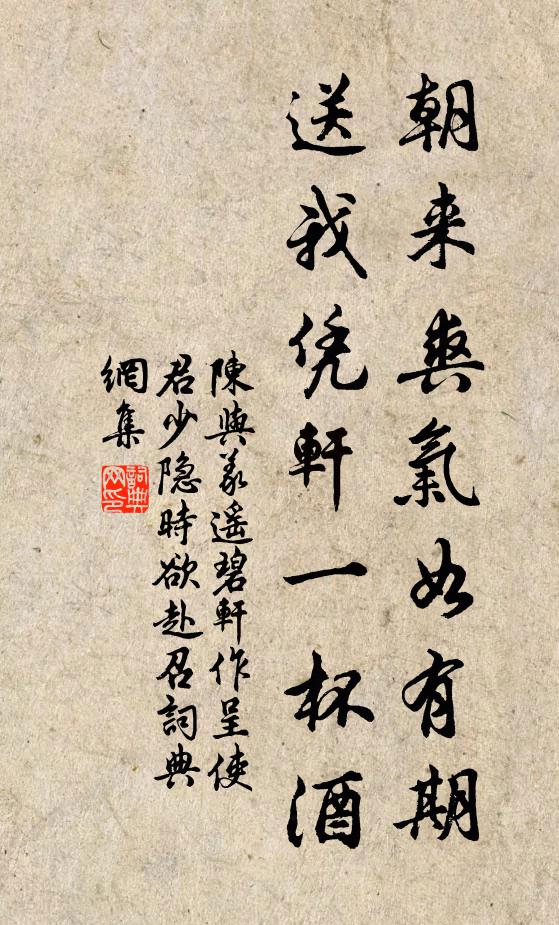 朝来爽氣如有期
送我凭軒一杯酒
陳與義遥碧軒作呈使
君少隐時欲赴召詞典
網集
詞典網印